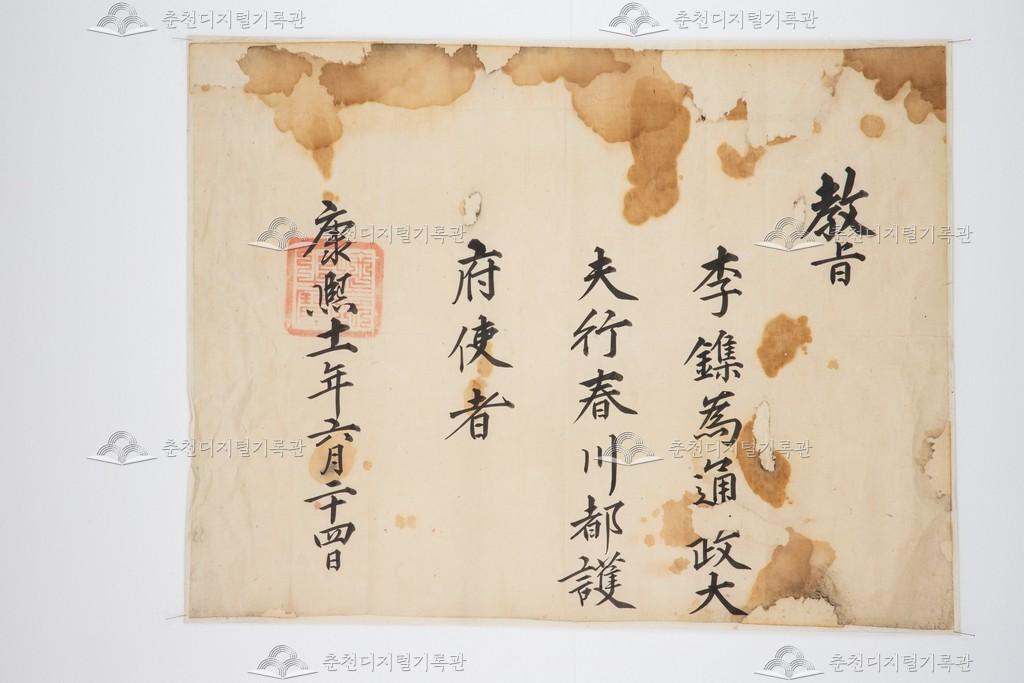 춘천디지털기록관
춘천디지털기록관
教旨
李鏶為通政大
夫行春川都護
府使者
康熙十一年六月二十四日
춘천디지털기록관
춘천디지털기록관
춘천디지털기록관
춘천디지털기록관
춘천디지털기록관
춘천디지털기록관